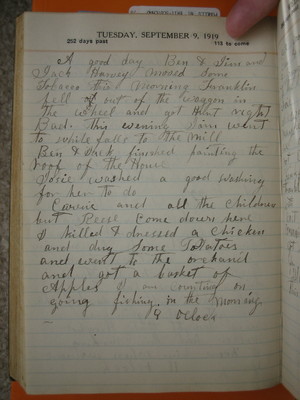 TUESDAY, SEPTEMBER 9, 1919
252 days past 113 to come
A good day Ben & Sim and
Jack Harvey moed Some
Tobacco this morning Franklin
fell of out of the waggon in
the wheel and got Hurt right
Bad. This evening Sim went
to white falls to the mill
Ben & Jack finished painting the
roof of the House
Josie washed a good washing
for her to do
Carrie and all the Children
but Reese come down here
I killed & dressed a chicken
and dug Some Potatoes
and went to the orchard
and got a basket of
Apples I am counting on
going fishing in the morning
9 oClock